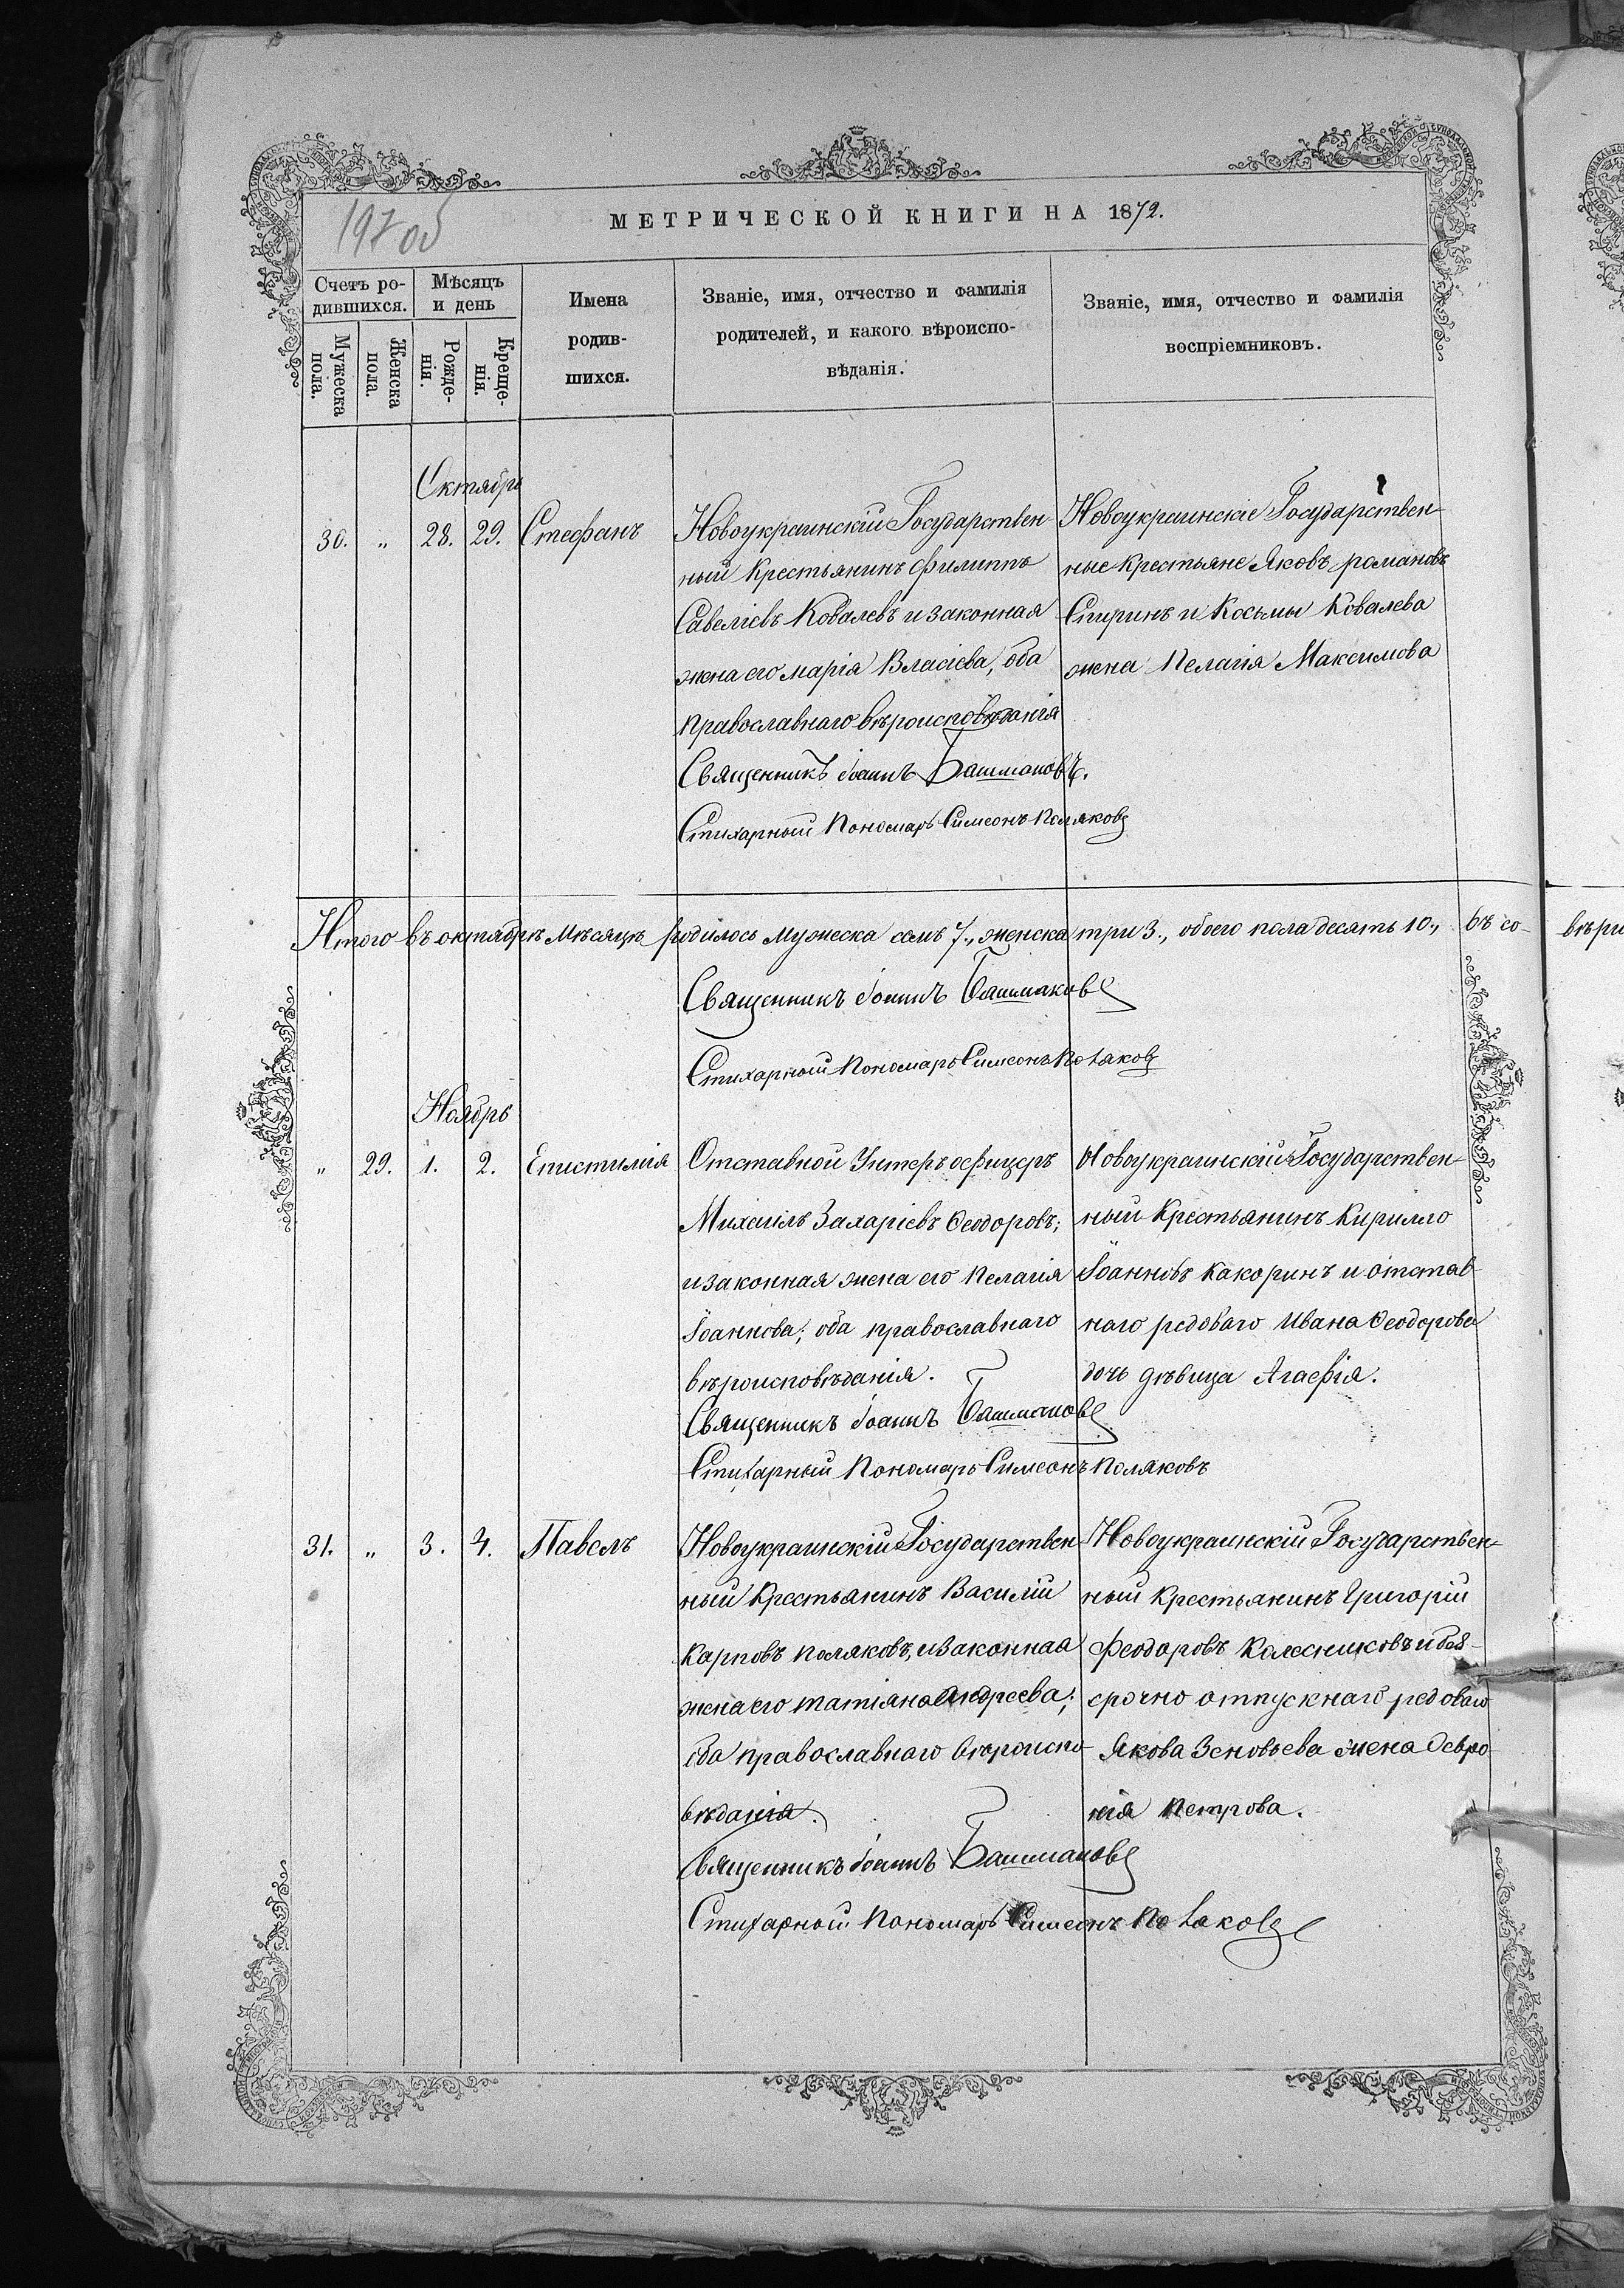 197 об
МЕТРИЧЕСКОЙ КНИГИ НА 1872.
Счетъ ро-
дившихся.
Мѣсяцъ
и день
Имена
родив-
шихся.
Званіе, имя, отчество и фамилія
родителей, и какого вѣроиспо-
вѣданія.
Званіе, имя, отчество и фамилія
воспріемниковъ.
Мужеска
пола.
Женска
пола.
Рожде-
нія.
Креще-
нія.
Октябрь
30. „ 28. 29. Стефанъ
Новоукраинскій Государствен
ный Крестьянинъ Филиппъ
Савеліевъ Ковалевъ и законная
жена его Марія Власіева, оба
православнаго вѣроисповѣданія
Священникъ Іоаннъ Башмаковъ.
Стихарный Пономарь Симеонъ Поляковъ
Новоукраинскіе Государствен-
ные крестьяне Яковъ романовъ
Спиринъ и Косьмы Ковалева
жена Пелагія Максимова
Итого въ октябрѣ мѣсяцѣ родилось мужеска семь 7., женска три 3., обоего пола десять 10., въ со-
Священникъ Іоаннъ Башмаковъ
Стихарный Пономарь Симеонъ Поляковъ
Ноябрь
„ 29. 1. 2. Епистимія
Отставной Унтеръ офицеръ
Михаилъ Захаріевъ Феодоровъ;
и законная жена его Пелагія
Іоаннова; оба православнаго
вѣроисповѣданія.
Священникъ Іоаннъ Башмаковъ
Стихарный Пономарь Симеонъ Поляковъ
Новоукраинскій Государствен-
ный Крестьянинъ Кирилло
Іоанновъ Какоринъ и отстав-
наго редоваго Ивана Феодорова
дочь дѣвица Агафія.
31. „ 3. 4. Павелъ
Новоукраинскій Государствен
ный Крестьянинъ Василій
Карповъ Поляковъ, и законная
жена его татіяна Андреева;
оба православнаго вѣроиспо-
вѣданія.
Священникъ Іоаннъ Башмаковъ
Стихарной Пономарь Симеонъ Поляковъ
Новоукраинскій Государствен-
ный Крестьянинъ Григорій
Феодоровъ Колесниковъ и без-
срочно отпускнаго редоваго
Якова Зеновьева жена Февро-
нія Петрова.